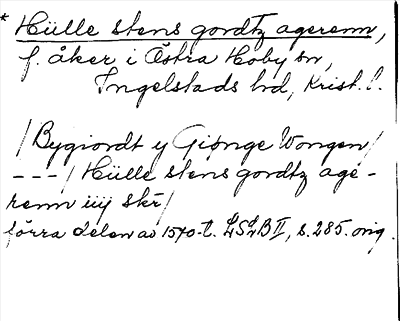 * Hülle stens gordtz agerenn,
f. åker i Östra Hoby sn,
Ingelstads hd, Krist. l.
/Bygiordt y Giønge Wongen/
---/Hülle stens gordtz age-
renn iiij skr/
förra delen av 1570-t. LSLB II, s. 285. orig.